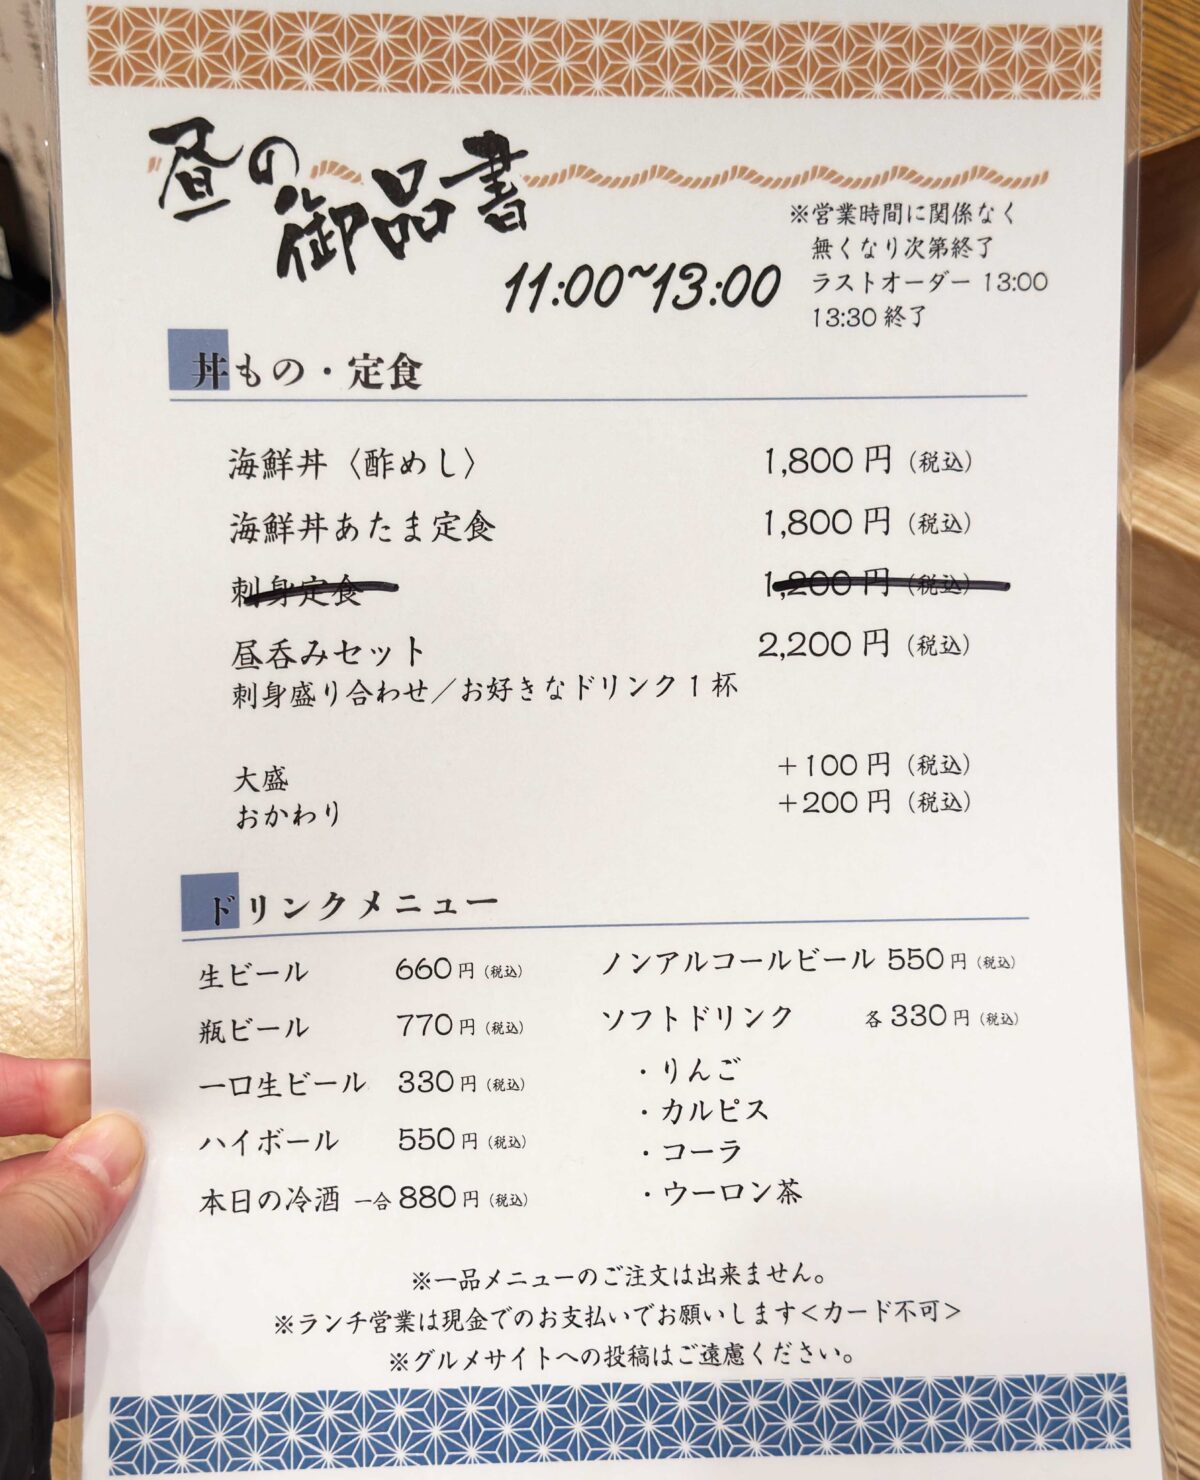 昼の御品書
11:00~13:00
※営業時間に関係なく
無くなり次第終了
ラストオーダー 13:00
13:30 終了
丼もの・定食
海鮮丼〈酢めし〉 1,800 円 (税込)
海鮮丼あたま定食 1,800 円 (税込)
刺身定食 1,200 円 (税込)
昼呑みセット 2,200 円 (税込)
刺身盛り合わせ／お好きなドリンク 1 杯
大盛 +100 円 (税込)
おかわり +200 円 (税込)
ドリンクメニュー
生ビール 660 円 (税込)
瓶ビール 770 円 (税込)
一口生ビール 330 円 (税込)
ハイボール 550 円 (税込)
本日の冷酒 一合 880 円 (税込)
ノンアルコールビール 550 円 (税込)
ソフトドリンク 各 330 円 (税込)
・りんご
・カルピス
・コーラ
・ウーロン茶
※一品メニューのご注文は出来ません。
※ランチ営業は現金でのお支払いでお願いします＜カード不可＞
※グルメサイトへの投稿はご遠慮ください。